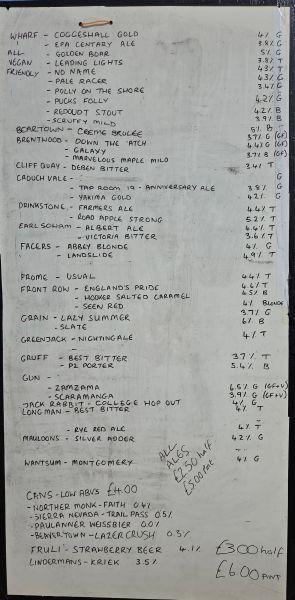 WHARF - COGGESHALL GOLD 4% G
" - EPA CENTARY ALE 3.8% G
ALL - GOLDEN BOAR 5% G
VEGAN - LEADING LIGHTS 3.8% T
FRIENDLY - NO NAME 4.3% T
- PALE RACER 4.3% G
- POLLY ON THE SHORE 3.4% G
- PUCKS FOLLY 4.2% G
- REDOUDT STOUT 4.2% B
- SCRUFFY MILD 3.9% B
BEARTOWN - CREME BRULEE 5% B
BRENTWOOD - DOWN THE 'ATCH 3.7% G (GF)
- GALAXY 4.4% G (GF)
- MARVELOUS MAPLE MILD 3.7% B (GF)
CLIFF QUAY - DEBEN BITTER 3.4% T
CROUCH VALE - G
- TAP ROOM 19 - ANNIVERSARY ALE 3.8% G
- YAKIMA GOLD 4.2% G
DRINKSTONE - FARMERS ALE 4.4% T
- ROAD APPLE STRONG 5.2% T
EARL SOHAM - ALBERT ALE 4.4% T
- VICTORIA BITTER 3.6% T
FACERS - ABBEY BLONDE 4% G
- LANDSLIDE 4.9% T
FROME - USUAL 4.4% T
FRONT ROW - ENGLAND'S PRIDE 4.6% T
- HOOKER SALTED CARAMEL 4.5% B
- SEEN RED 4% BLONDE
GRAIN - LAZY SUMMER 3.7% G
- SLATE 6% B
GREENJACK - NIGHTINGALE 4% T
GRUFF - BEST BITTER 3.7% T
- P2 PORTER 5.4% B
GUN -
- ZAMZAMA 6.5% G (GF+V)
- SCARAMANGA 3.9% G (GF+V)
JACK RABBIT - COLLEGE HOP OUT 4% G
LONGMAN - BEST BITTER 4% T
- RYE RED ALE 4% T
MAULDONS - SILVER ADDER 4.2% G
WANTSUM - MONTGOMERY 4% G
ALL
ALES
£2.50 half
£5.00 Pint
CANS - LOW ABVS £4.00
- NORTHER MONK - FAITH 0.4%
- SIERRA NEVADA - TRAIL PASS 0.5%
- PAULANNER WEISSBIER 0.0%
- BEAVERTOWN - LAZER CRUSH 0.3%
FRULI - STRAWBERRY BEER 4.1% £3.00 half
LINDERMANS - KRIEK 3.5% £6.00 PINT